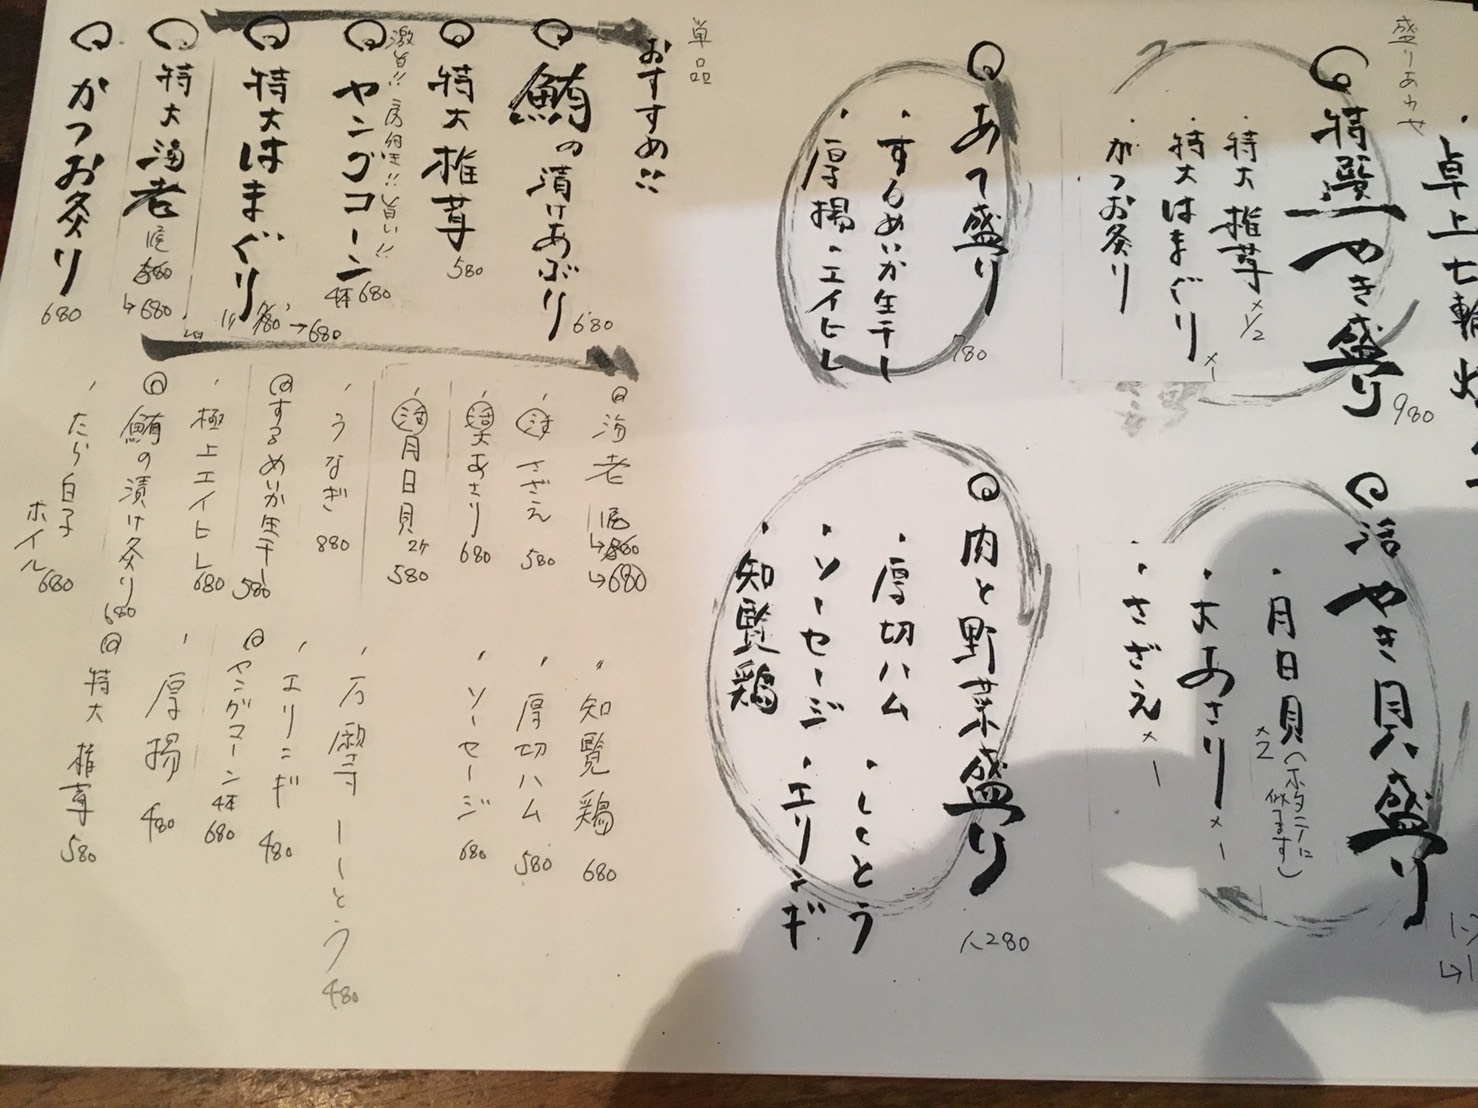 盛りあわせ
特選やき盛り
980
・特大椎茸 ×1/2
・特大はまぐり ×1
・かつお炙り
活やき貝盛り
・月日貝 ×2
(ホタテに似てます)
・大あさり ×1
・さざえ ×1
あて盛り
780
・するめいか生干し
・厚揚・エイヒレ
肉と野菜盛り
1,280
・厚切ハム
・ソーセージ
・知覧鶏
・ししとう
・エリンギ
単品
おすすめ!!
鮪の漬けあぶり 680
特大椎茸 580
ヤングコーン 4本 680
激旨!! 房付生!! 旨い!!
特大はまぐり
→680
特大海老
↳680
かつお炙り 680
海老
↳680
活 さざえ 580
大あさり 680
活 月日貝 2ケ 580
うなぎ 880
するめいか生干し 580
極上エイヒレ 680
鮪の漬け炙り 680
たら白子ホイル 680
知覧鶏 680
厚切ハム 580
ソーセージ 680
万願寺ししとう 480
エリンギ 480
ヤングコーン 4本 680
厚揚 480
特大椎茸 580